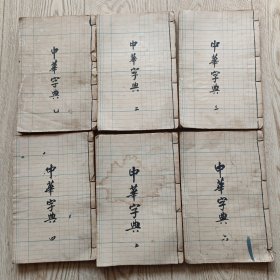 中華字典
中華字典 二
中華字典 三
中華字典 四
中華字典 五
中華字典 六